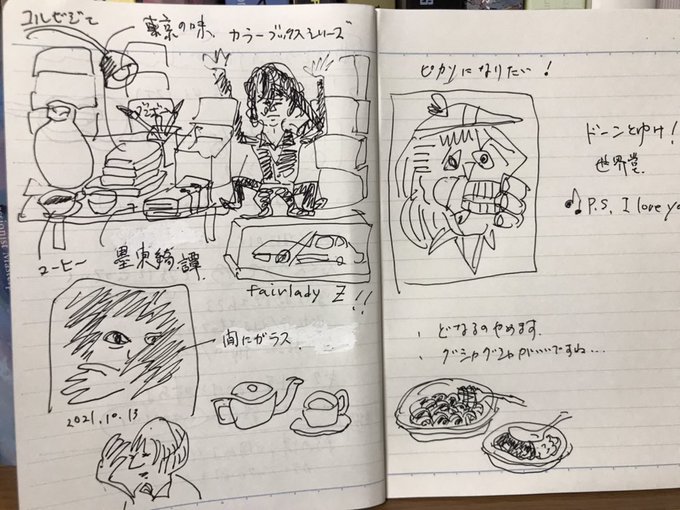 コルビジェ
東京の味、カラーブックスシリーズ
コーヒー
墨東綺譚
fairlady Z!!
間にガラス
2021.10.13
ピカソになりたい!
ドーンとゆけ!
世界堂
♪P.S. I love yo
、どなるのやめます。
、グシャグシャ
ですね…